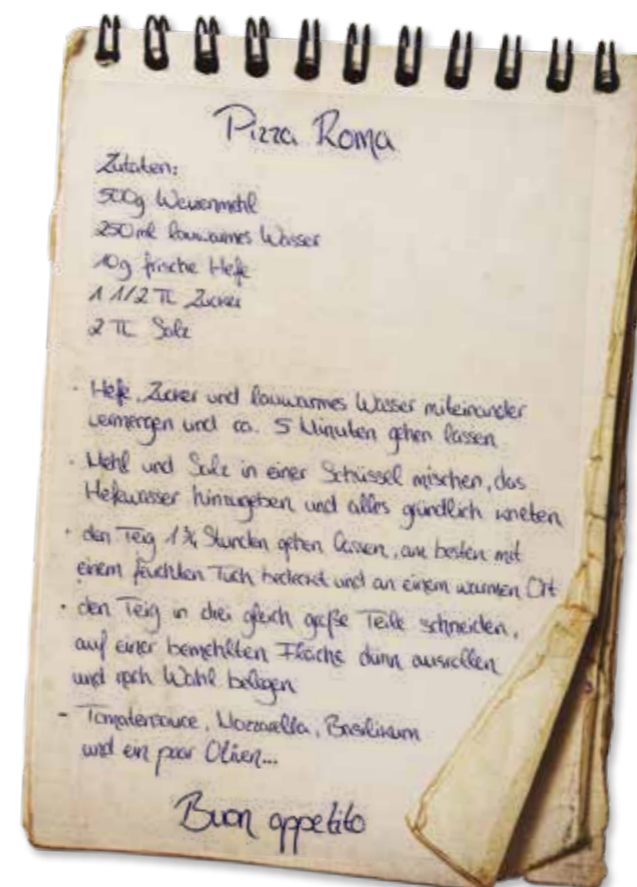 Pizza Roma
Zutaten:
500g Weizenmehl
250 ml lauwarmes Wasser
10g frische Hefe
1 1/2 TL Zucker
2 TL Salz
- Hefe, Zucker und lauwarmes Wasser miteinander
vermengen und ca. 5 Minuten gehen lassen
- Mehl und Salz in einer Schüssel mischen, das
Hefewasser hinzugeben und alles gründlich kneten
- den Teig 1 3/4 Stunden gehen lassen, am besten mit
einem feuchten Tuch bedeckt und an einem warmen Ort
- den Teig in drei gleich große Teile schneiden,
auf einer bemehlten Fläche dünn ausrollen
und nach Wahl belegen
- Tomatensauce, Mozzarella, Basilikum
und ein paar Oliven...
Buon appetito